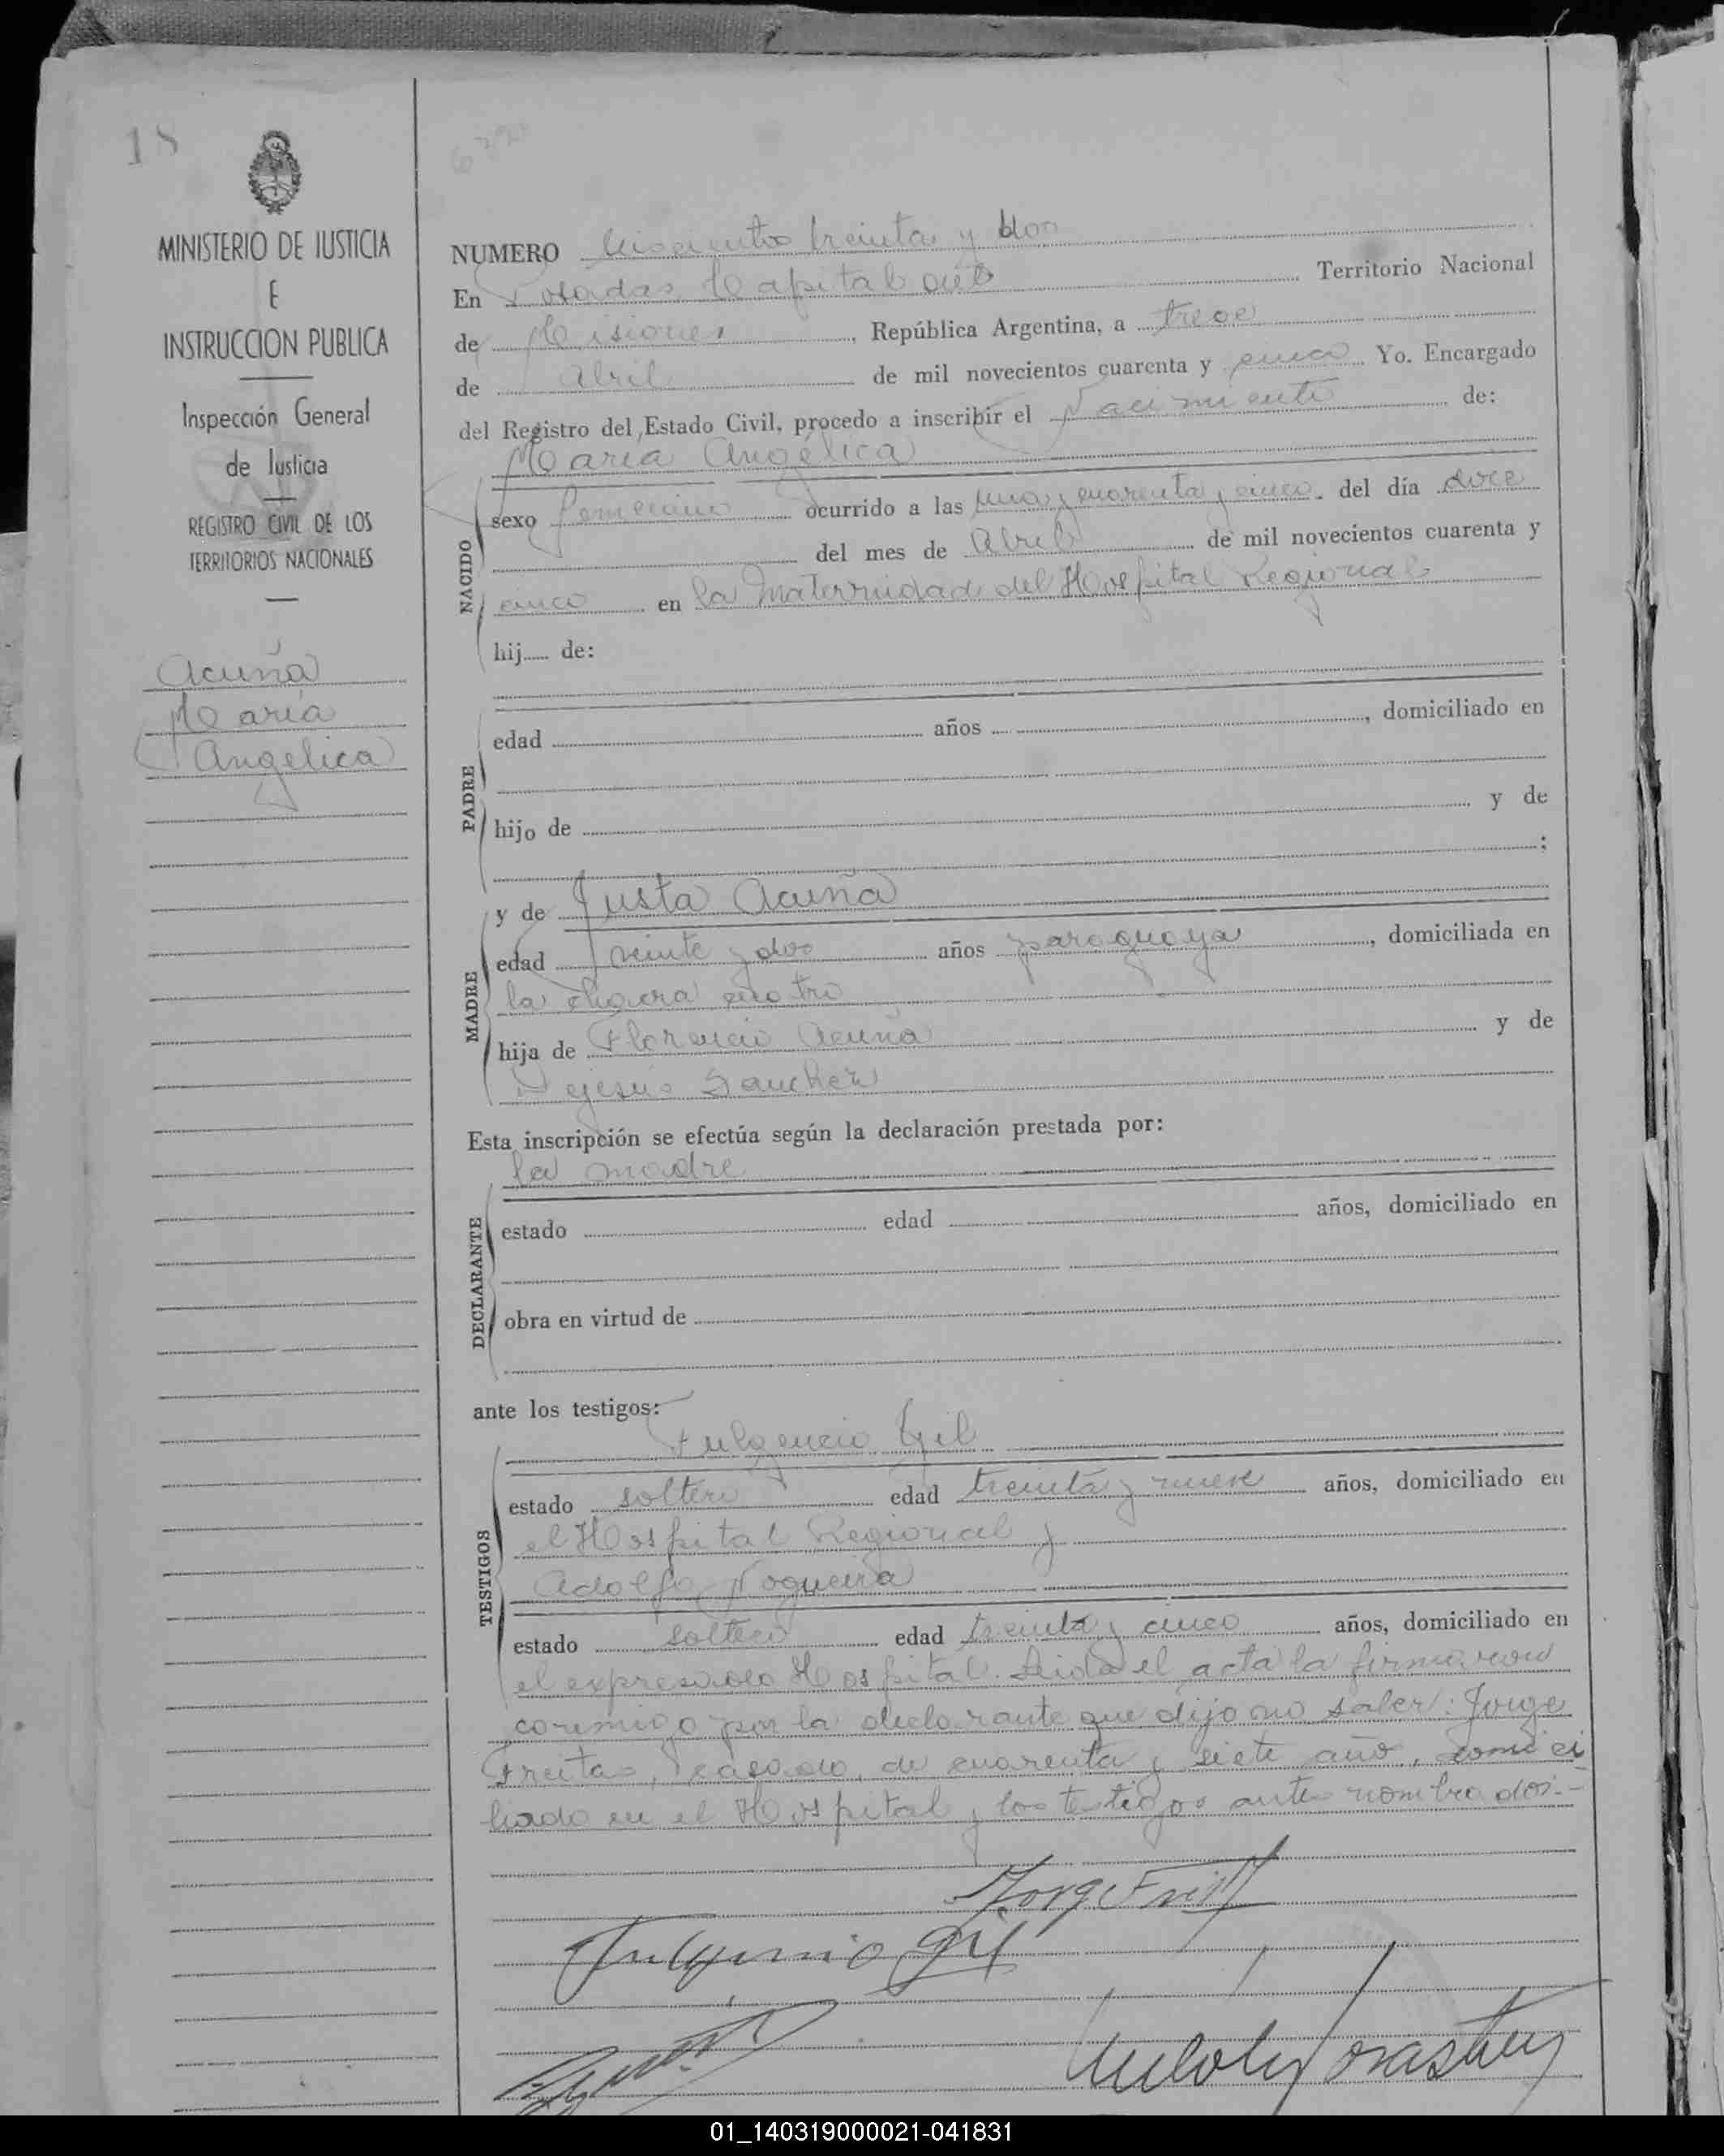 18
MINISTERIO DE JUSTICIA
E
INSTRUCCION PUBLICA
Inspección General
de Justicia
REGISTRO CIVIL DE LOS
TERRITORIOS NACIONALES
Acuña
María
Angélica
NUMERO treinta y dos
En Posadas Capital del Territorio Nacional
de Misiones, República Argentina, a trece
de Abril de mil novecientos cuarenta y cinco Yo. Encargado
del Registro del Estado Civil, procedo a inscribir el Nacimiento de:
María Angélica
NACIDO
sexo femenino ocurrido a las una y cuarenta y cinco. del día doce
del mes de Abril de mil novecientos cuarenta y
cinco en la Maternidad del Hospital Regional
hij de:
PADRE
edad años , domiciliado en
hijo de y de
;
MADRE
y de Justa Acuña
edad veinte y dos años paraguaya, domiciliada en
la chacra cuatro
hija de Florencio Acuña y de
Dejesús Sanchez
Esta inscripción se efectúa según la declaración prestada por:
la madre
DECLARANTE
estado edad años, domiciliado en
obra en virtud de
ante los testigos:
Fulgencio Gil
TESTIGOS
estado soltero edad treinta y nueve años, domiciliado en
el Hospital Regional y
Adolfo Nogueira
estado soltero edad treinta y cinco años, domiciliado en
el expresado Hospital. Leida el acta la firmaron
conmigo por la declarante que dijo no saber: Jorge
Freitas, casado, de cuarenta y siete año, domici
liado en el Hospital y los testigos antes nombrados.-
Fulgencio Gil
01_140319000021-041831